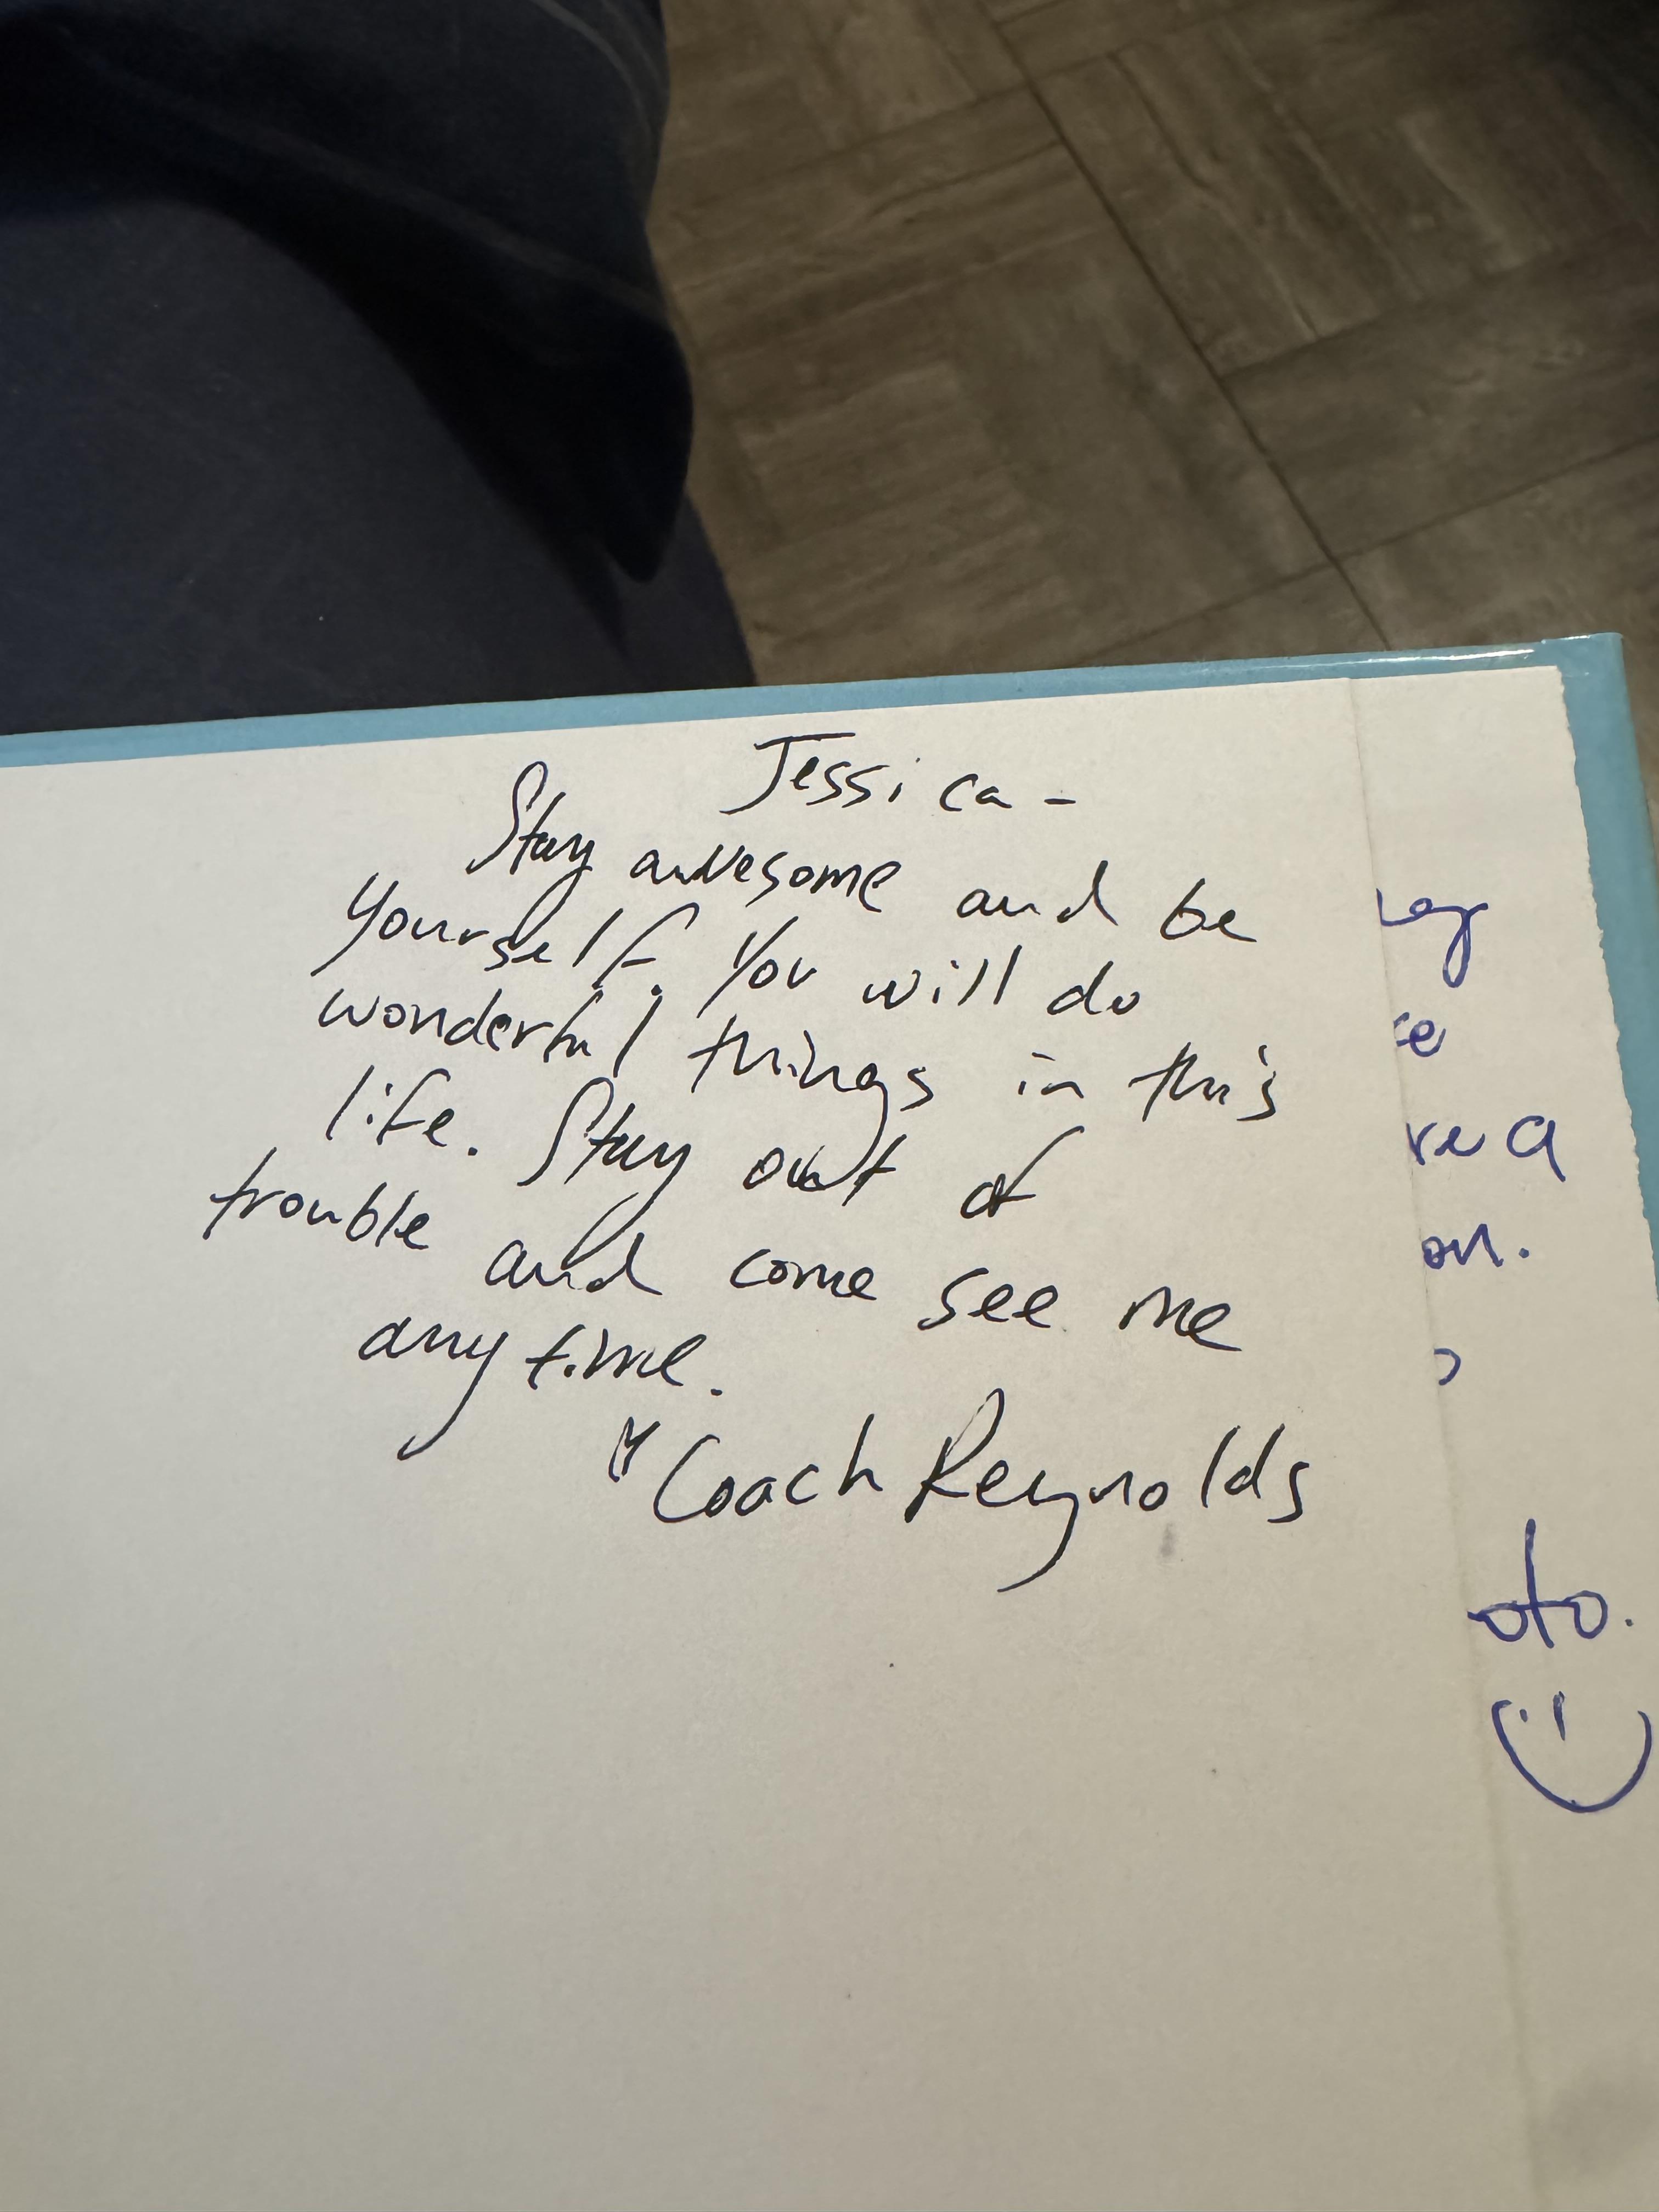 Jessica -
Stay awesome and be
yourself. You will do
wonderful things in this
life. Stay out of
trouble and come see me
anytime.
Coach Reynolds
re a
on.
oto.